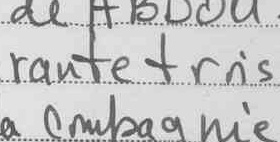 de ABDOU
rante trois
a Compagnie